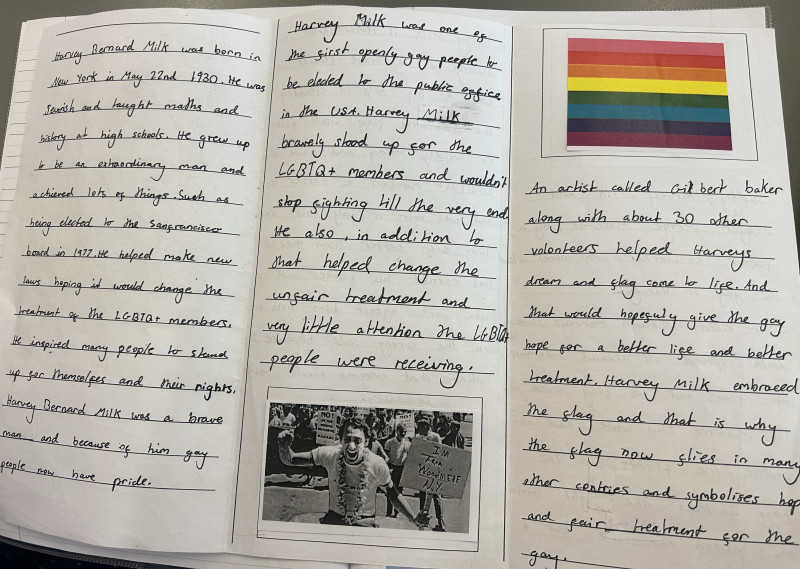 Harvey Bernard Milk was born in
New York in May 22nd 1930. He was
Jewish and taught maths and
history at high schools. He grew up
to be an extraordinary man and
achieved lots of things. Such as
being elected to the sanfrancisco
board in 1977. He helped make new
laws hoping it would change the
treatment of the LGBTQ+ members.
He inspired many people to stand
up for themselfes and their rights.
Harvey Bernard Milk was a brave
man and because of him gay
people now have pride.
Harvey Milk was one of
the first openly gay people to
be eleded to the public office
in the USA. Harvey Milk
bravely stood up for the
LGBTQ+ members and wouldn't
stop fighting till the very end.
He also, in addition to
that helped change the
unfair treatment and
very little attention the LGBTQ+
people were receiving.
I'M
From
WOODMERE
N.Y.
An artist called Gilbert baker
along with about 30 other
volunteers helped Harveys
dream and flag come to life. And
that would hopefuly give the gay
hope for a better life and better
treatment. Harvey Milk embraced
the flag and that is why
the flag now flies in many
other contries and symbolises hop
and fair treatment for the
gay.